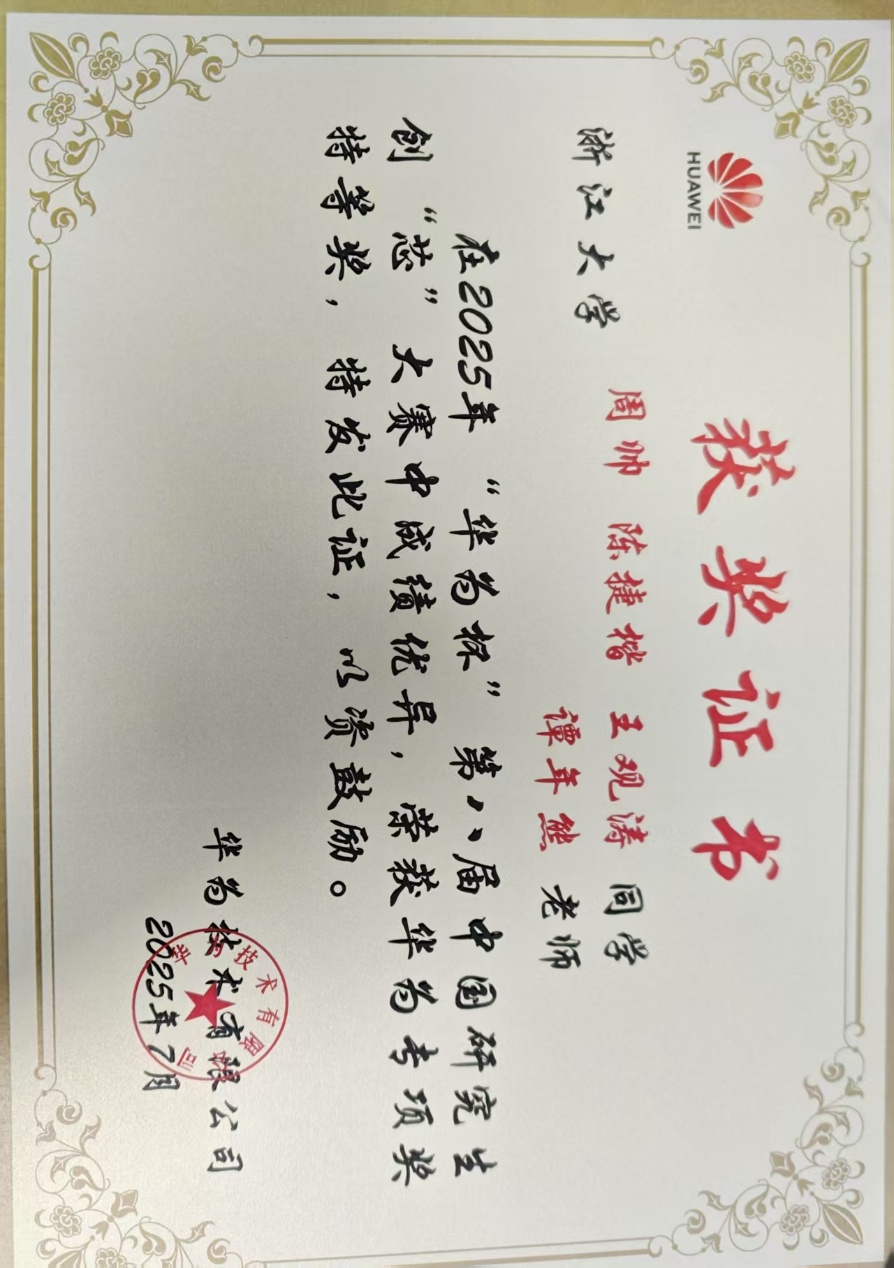 HUAWEI
获奖证书
浙江大学 周帅 陈捷楷 王观涛 同学
谭年熊 老师
在2025年“华为杯”第八届中国研究生
创“芯”大赛中成绩优异，荣获华为专项奖
特等奖，特发此证，以资鼓励。
华为技术有限公司
2025年7月